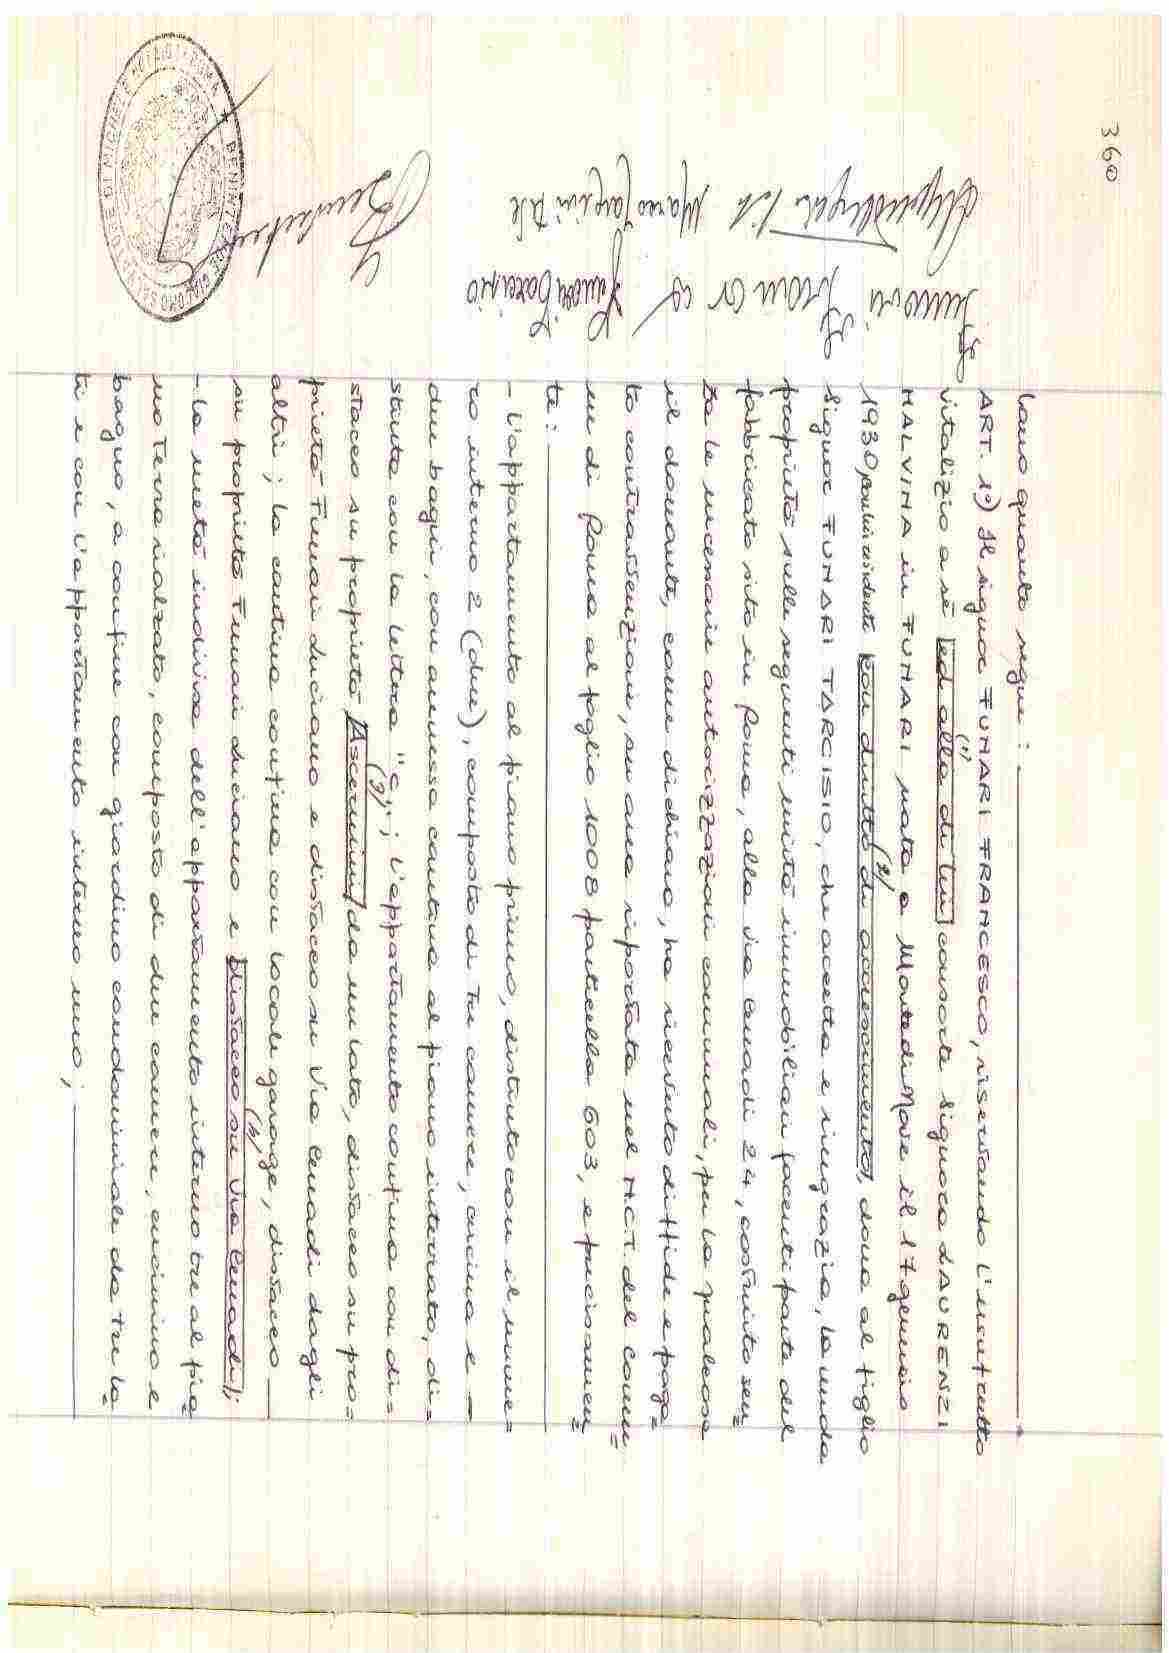 360
lano quanto segue:
ART. 1°) Il signor FUNARI FRANCESCO, riservando l'usufrutto
(1)
vitalizio a sè ed alla di lui consorte signora LAURENZI
MALVINA in FUNARI nata a Montedinove il 17 gennaio
(2)
1930, con diritto di accrescimento, dona al figlio
signor FUNARI TARCISIO, che accetta e ringrazia, la nuda
proprietà sulle seguenti unità immobiliari facenti parte del
fabbricato sito in Roma, alla via 24, costruito sen=
za le necessarie autorizzazioni comunali, per la qual cosa
il donante, come dichiara, ha ricevuto diffide e paga=
to contravvenzioni, su area riportata nel N.C.T. del comu=
ne di Roma al foglio 1008 particella 603, e precisamen=
te:
- l'appartamento al piano primo, distinto con il nume=
ro interno 2 (due), composto di tre camere, cucina e
due bagni, con annessa cantina al piano interrato, di=
stinta con la lettera "c"; l'appartamento confina con di=
(3)
stacco su proprietà Ascenzini da un lato, distacco su pro=
prietà Funari Luciano e distacco su via dagli
altri; la cantina confina con locale garage, distacco
su proprietà Funari Luciano e distacco su via
(4)
- la metà indivisa dell'appartamento interno tre al pia=
no terra rialzato, composto di due camere, cucinino e
bagno, a confine con giardino condominiale da tre la=
ti e con l'appartamento interno uno;
Funari Francesco
Funari Tarcisio
Marco Tarquini Teste